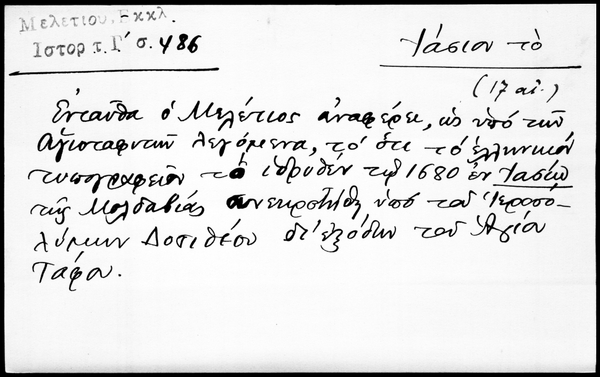 Μελετίου, Εκκλ.
Ἱστορ τ. Γ΄ σ. 486
Ἰάσιον τὸ
(17 αἰ.)
Ἐνταῦθα ὁ Μελέτιος ἀναφέρει, ὡς ὑπὸ τῶν
Ἁγιοταφιτῶν λεγόμενα, τὸ ὅτι τὸ ἑλληνικὸν
τυπογραφεῖον τὸ ἱδρυθὲν τῷ 1680 ἐν Ἰασίῳ
τῆς Μολδαβίας συνεκροτήθη ὑπὸ τοῦ Ἱεροσο-
λύμων Δοσιθέου δι' ἐξόδων τοῦ Ἁγίου
Τάφου.